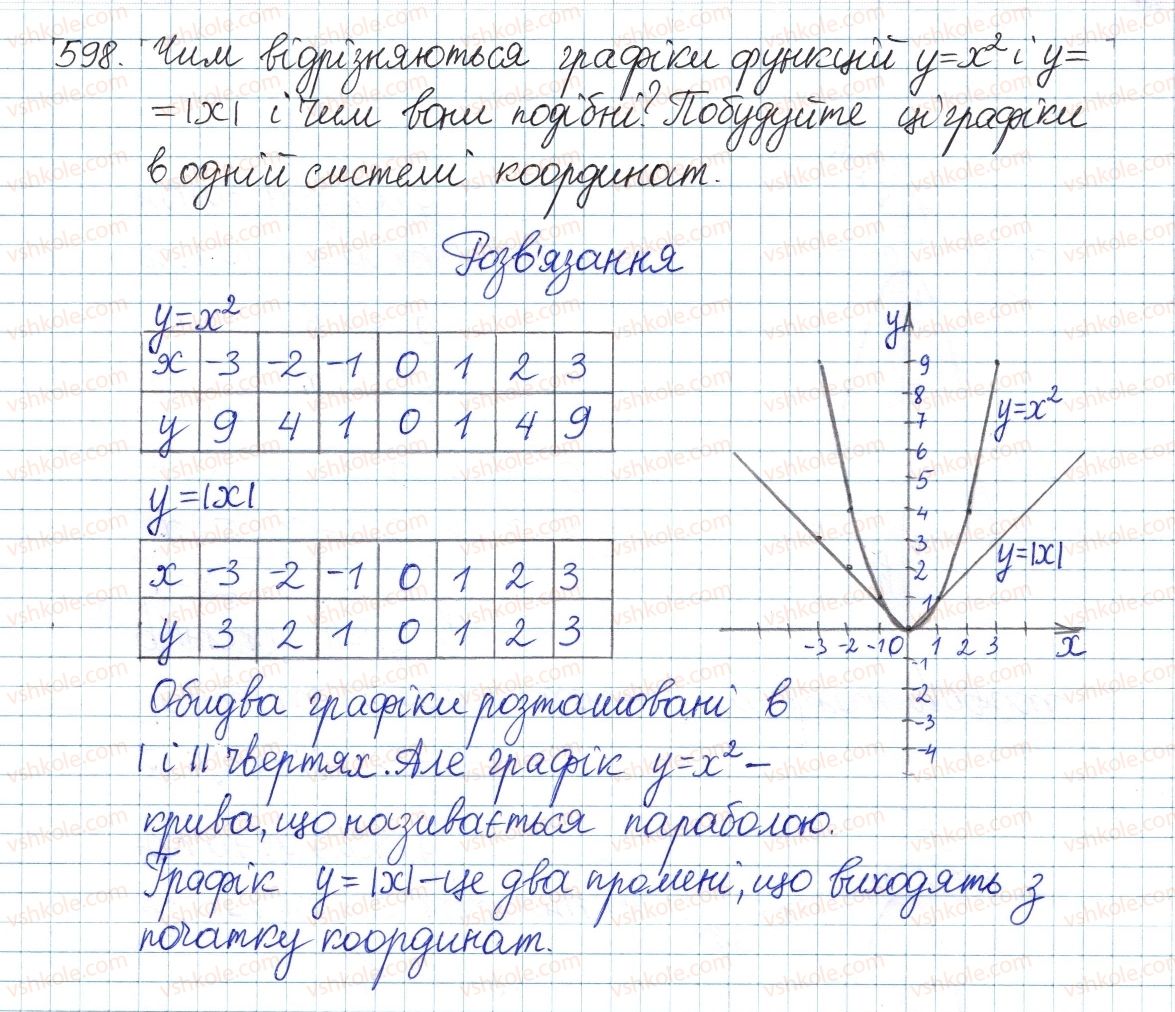 598. Чим відрізняються графіки функцій y=x² і y=
=|x| і чим вони подібні? Побудуйте ці графіки
в одній системі координат.
Розв'язання
y=x²
x -3 -2 -1 0 1 2 3
y 9 4 1 0 1 4 9
y=|x|
x -3 -2 -1 0 1 2 3
y 3 2 1 0 1 2 3
y
9
8
7
6
5
4
3
2
1
-3 -2 -1 0 1 2 3 x
-1
-2
-3
-4
y=x²
y=|x|
Обидва графіки розташовані в
I і II чвертях. Але графік y=x² –
крива, що називається параболою.
Графік y=|x| – це два промені, що виходять з
початку координат.
vshkole.com